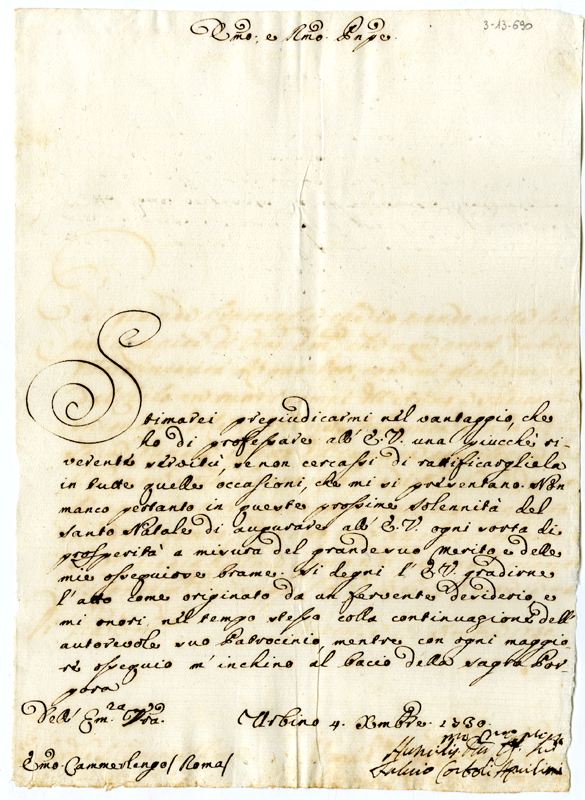 3-13-690
Emo: e Rmo. Pnpe.
Stimarei pregiudicarmi nel vantaggio, che
ho di professare all' E.V. una piucchè ri-
verente servitù, se non cercassi di rattificargliela
in tutte quelle occasioni, che mi si presentano. Non
manco pertanto in queste prossime solennità del
santo Natale di augurare all' E.V. ogni sorta di
prosperità a misura del grande suo merito, e delle
mie ossequiose brame. Si degni l' E.V. gradirne
l'atto come originato da un fervente desiderio, e
mi onori nel tempo stesso colla continuazione dell'
autorevole suo Patrocinio, mentre con ogni maggio-
re ossequio m'inchino al bacio della sagra Por-
pora
Dell' Em.za Vra. Urbino 4. Xmbre. 1780.
Fulvio Corboli Aquilini
Emo. Cammerlengo / Roma /